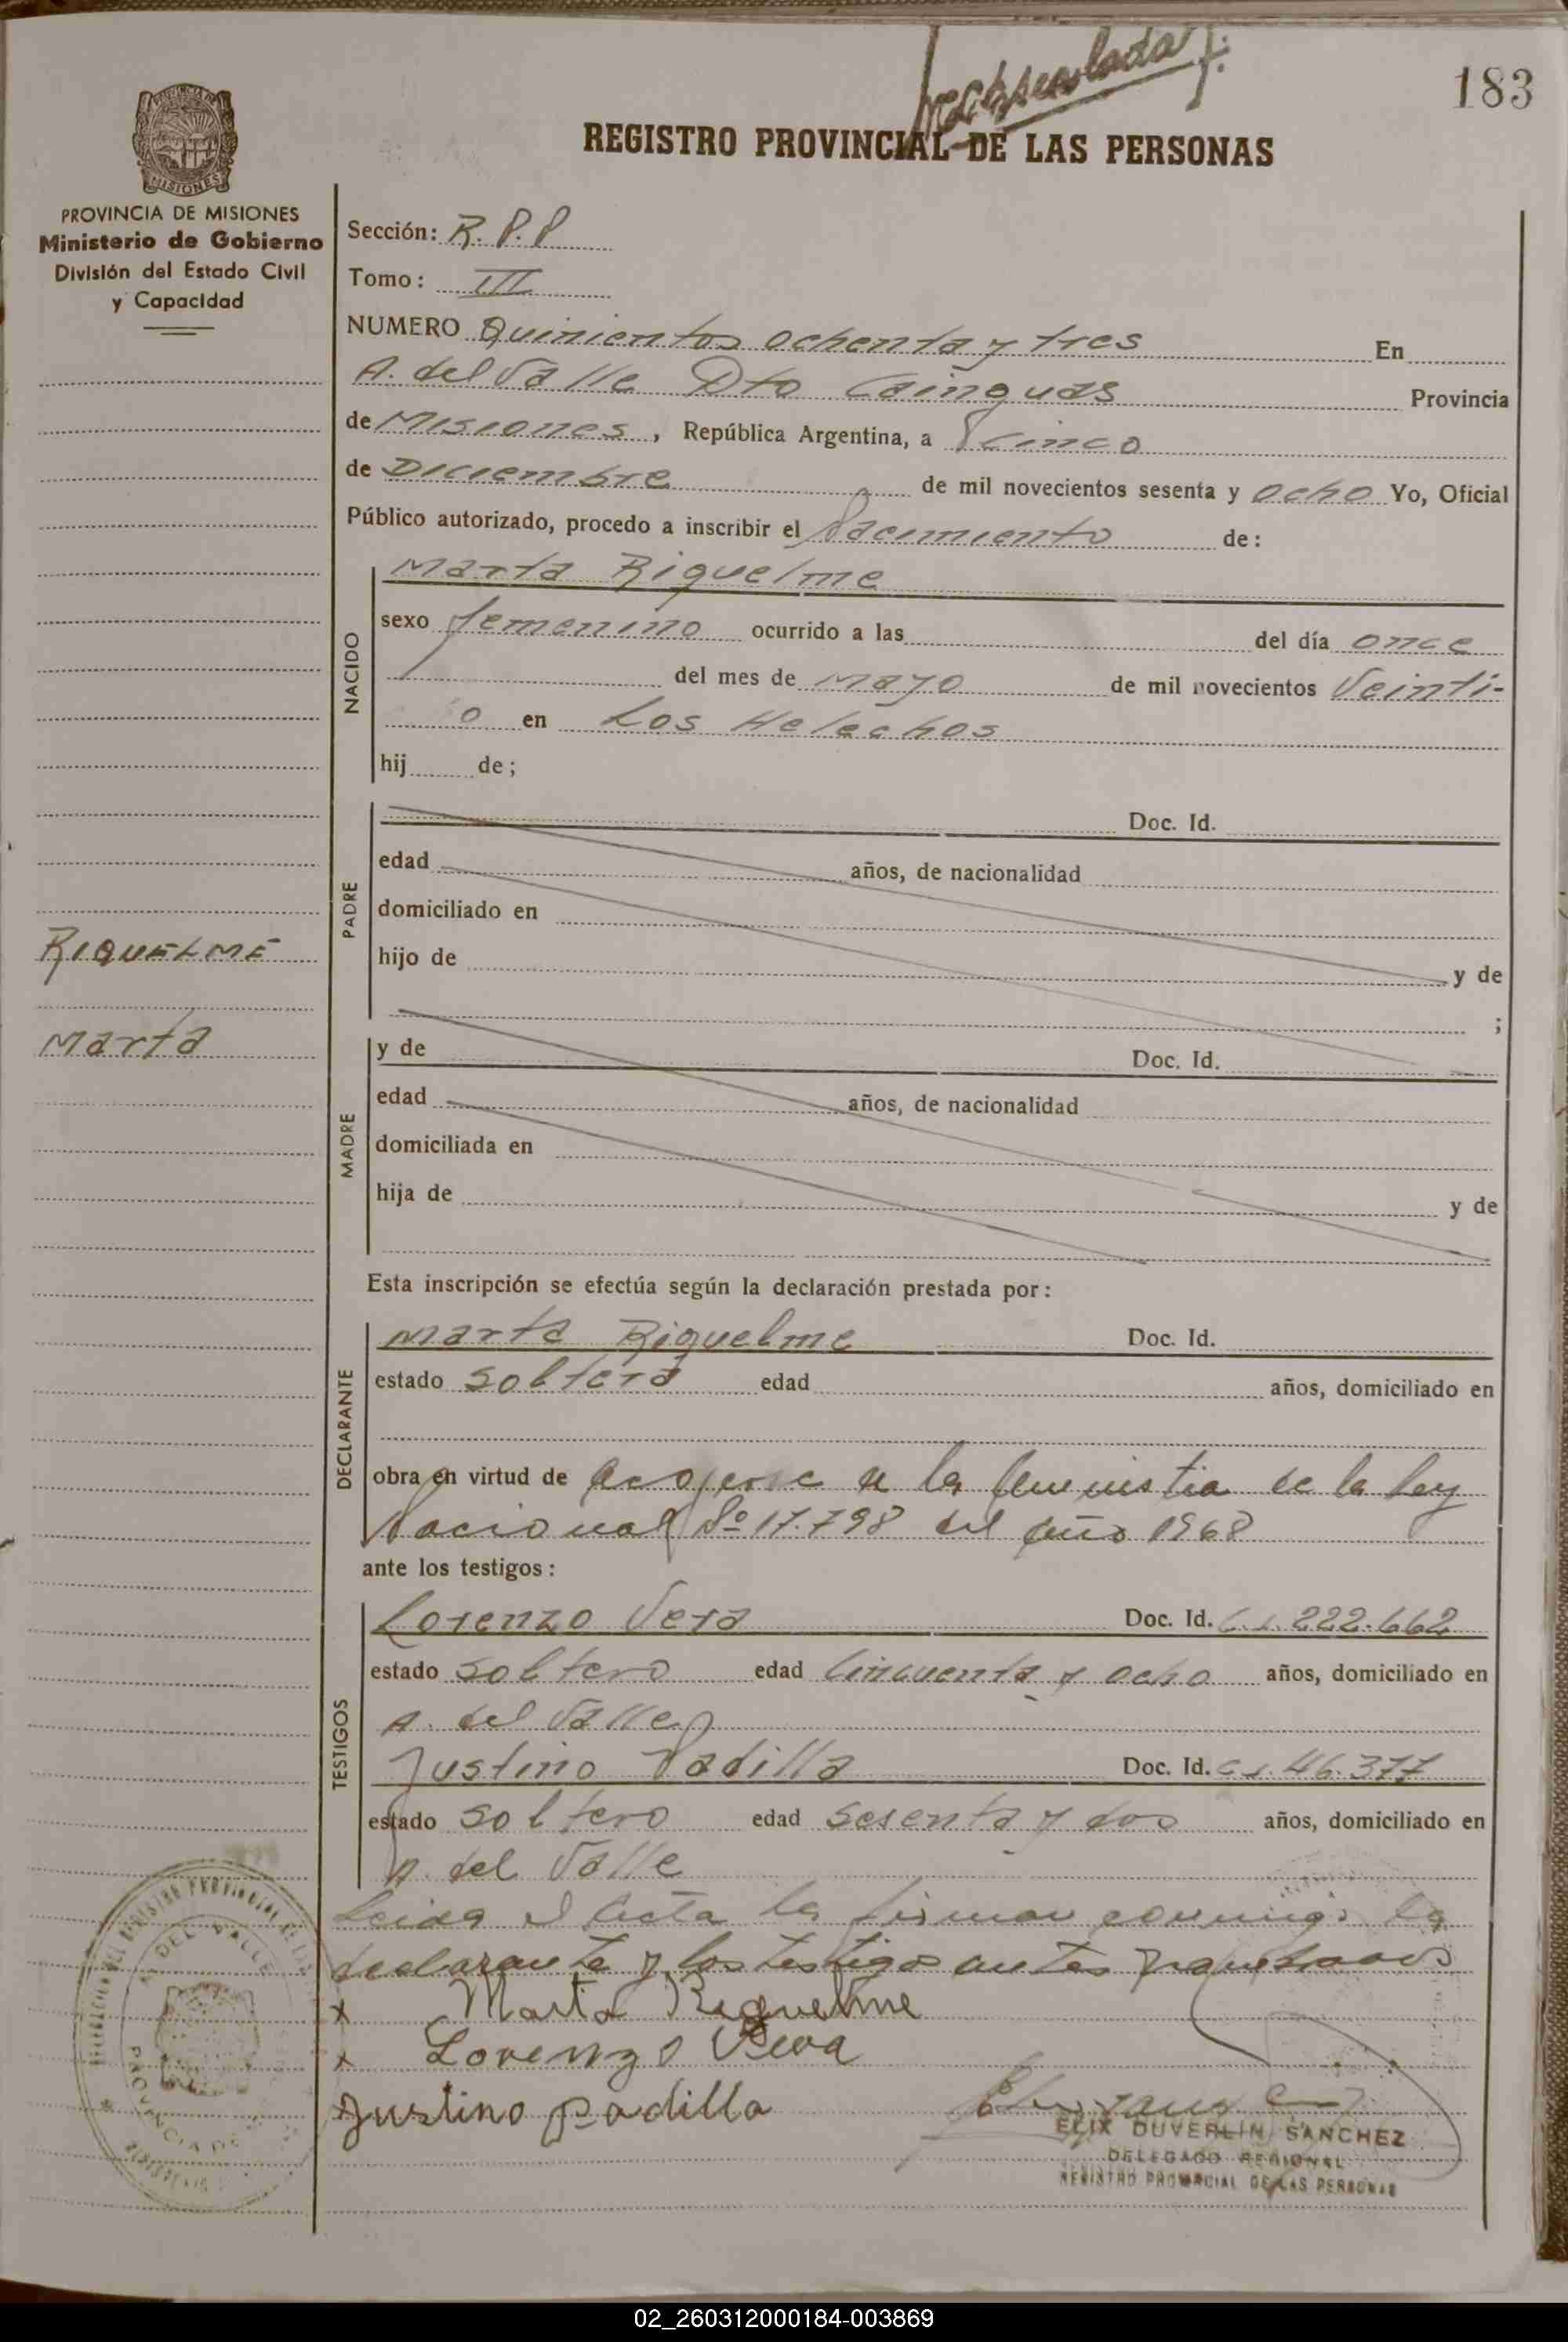 Recaratulada
183
REGISTRO PROVINCIAL DE LAS PERSONAS
PROVINCIA DE MISIONES
MISIONES
Ministerio de Gobierno
División del Estado Civil
y Capacidad
Sección: R.P.P
Tomo: III
NUMERO Quinientos ochenta y tres En
A. del Valle Dto Cainguas Provincia
de Misiones, República Argentina, a Cinco
de Diciembre de mil novecientos sesenta y ocho Yo, Oficial
Público autorizado, procedo a inscribir el Nacimiento de:
NACIDO
Marta Riquelme
sexo femenino ocurrido a las del día once
del mes de mayo de mil novecientos Veinti-
o en Los Helechos
hij de;
PADRE
Doc. Id.
edad años, de nacionalidad
domiciliado en
hijo de y de
;
RIQUELME
Marta
MADRE
y de Doc. Id.
edad años, de nacionalidad
domiciliada en
hija de y de
Esta inscripción se efectúa según la declaración prestada por:
DECLARANTE
Marta Riquelme Doc. Id.
estado soltera edad años, domiciliado en
obra en virtud de acojerse a la Amnistia de la Ley
Nacional Nº 17.798 del año 1968
ante los testigos:
TESTIGOS
Lorenzo Vera Doc. Id. C.I. 222.662
estado soltero edad Cincuenta y ocho años, domiciliado en
A. del Valle
Justino Padilla Doc. Id. C.I. 46.377
estado soltero edad sesenta y dos años, domiciliado en
A. del Valle
Leida el Acta la firman conmigo la
declarante y los testigos antes
x Marta Riquelme
x Lorenzo Vera
Justino padilla
DUVERLIN SANCHEZ
DELEGADO REGIONAL
REGISTRO PROVINCIAL DE LAS PERSONAS
A. DEL VALLE
PROVINCIA DE
02_260312000184-003869